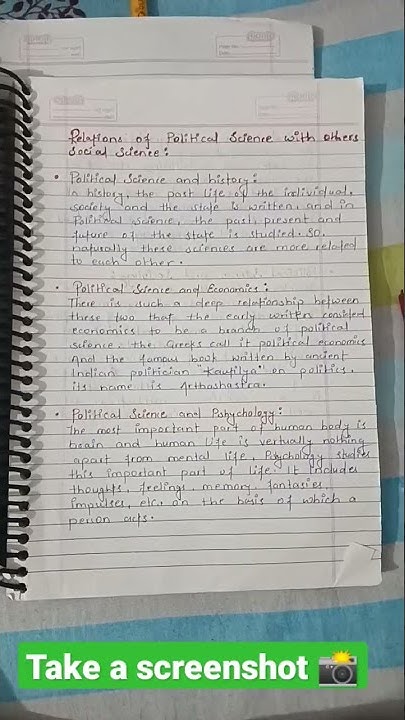 Relations of Political Science with others
Social Science:
• Political Science and history:
In history, the past life of the individual,
society and the state is written, and in
Political Science, the past, present and
future of the state is studied. So,
naturally these sciences are more related
to each other.
• Political Science and Economics:
There is such a deep relationship between
these two that the early written considered
economics to be a branch of political
science, the Greeks call it political economics
And the famous book written by ancient
Indian politician "Kautilya" on politics,
its name is Arthashastra.
• Political Science and Pshychology:
The most important part of human body is
brain and human life is vertually nothing
apart from mental life, Psychology studies
this important part of life. It includes
thoughts, feelings, memory, fantasies,
impulses, etc. on the basis of which a
person acts.
Take a screenshot 📸